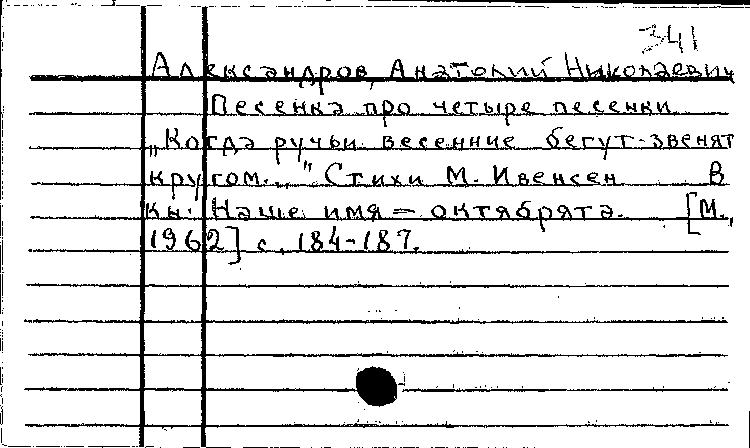 341
Александров, Анатолий Николаевич
Песенка про четыре песенки
„Когда ручьи весенние бегут-звенят
кругом..." Стихи М. Ивенсен В
кн: Наше имя – октябрята. [М.,
1962] с. 184-187.